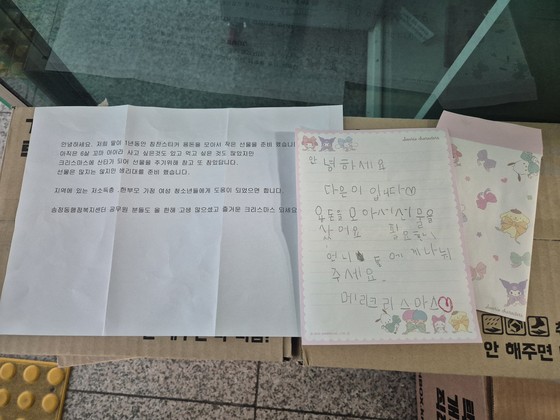 안녕하세요. 저희 딸이 1년동안 칭찬스티커 용돈을 모아서 작은 선물을 준비 했습니
아직은 6살 꼬마 아이라 사고 싶은것도 있고 먹고 싶은 것도 많았지만
크리스마스에 산타가 되어 선물을 주기위해 참고 또 참았답니다.
선물은 많지는 않지만 생리대를 준비 했습니다.
지역에 있는 저소득층, 한부모 가정 여성 청소년들에게 도움이 되었으면 합니다.
송정동행정복지센터 공무원 분들도 올 한해 고생 많으셨고 즐거운 크리스마스 되세요
안녕하세요
다은이 입니다
용돈을 모아서 선물을
샀어요 필요한
언니들에게 나눠
주세요.
메리크리스마스
안 해주면